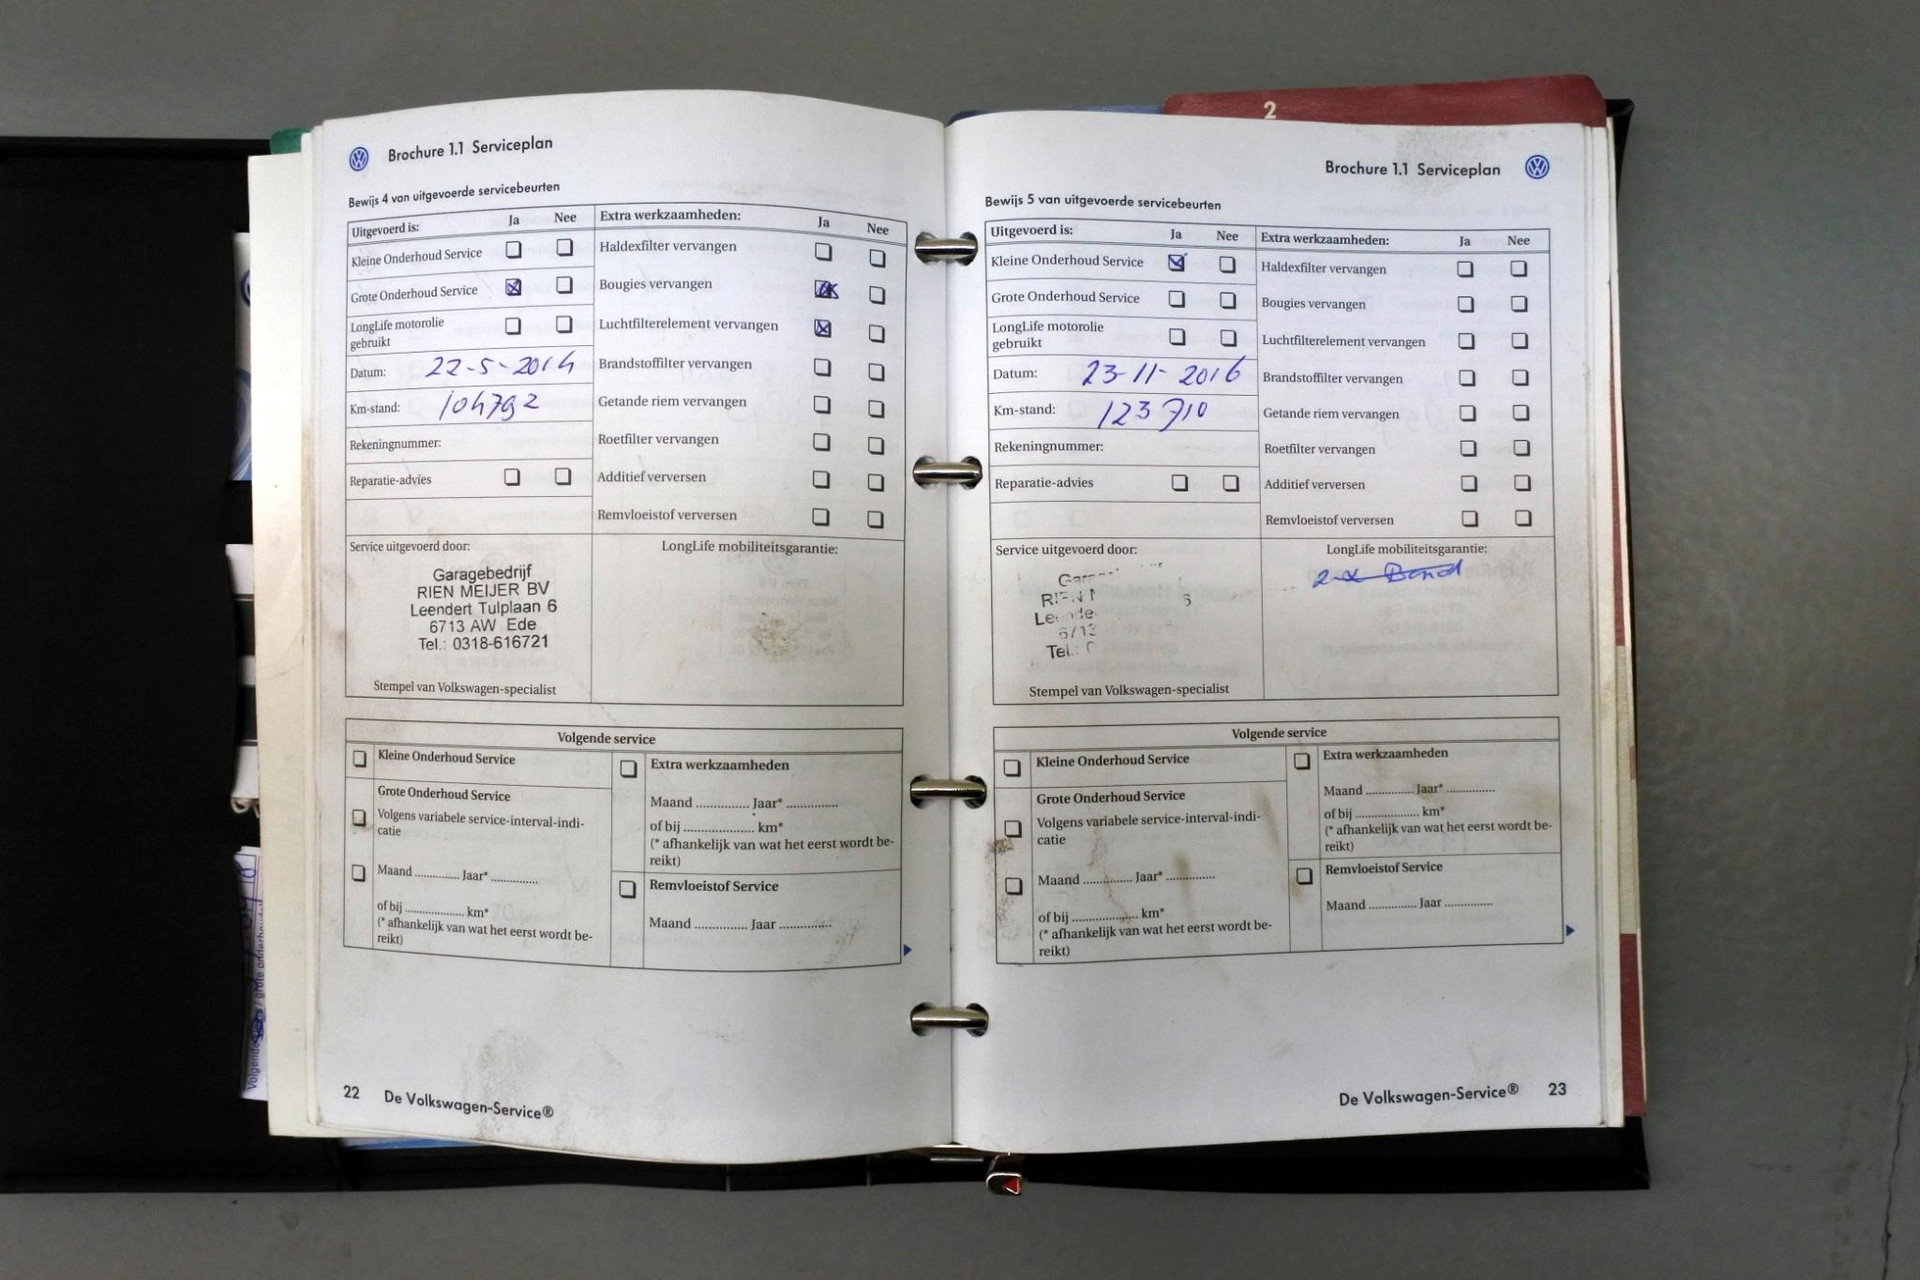 2
Brochure 1.1 Serviceplan
Bewijs 4 van uitgevoerde servicebeurten
Uitgevoerd is: Ja Nee
Kleine Onderhoud Service
Grote Onderhoud Service
LongLife motorolie
gebruikt
Datum: 22-5-2014
Km-stand: 104792
Rekeningnummer:
Reparatie-advies
Extra werkzaamheden: Ja Nee
Haldexfilter vervangen
Bougies vervangen
Luchtfilterelement vervangen
Brandstoffilter vervangen
Getande riem vervangen
Roetfilter vervangen
Additief verversen
Remvloeistof verversen
Service uitgevoerd door:
Garagebedrijf
RIEN MEIJER BV
Leendert Tulplaan 6
6713 AW Ede
Tel.: 0318-616721
Stempel van Volkswagen-specialist
LongLife mobiliteitsgarantie:
Volgende service
Kleine Onderhoud Service
Grote Onderhoud Service
Volgens variabele service-interval-indi-
catie
Maand ............. Jaar* .............
of bij ................. km*
(* afhankelijk van wat het eerst wordt be-
reikt)
Extra werkzaamheden
Maand ............... Jaar* ..............
of bij .................... km*
(* afhankelijk van wat het eerste wordt be-
reikt)
Remvloeistof Service
Maand ............... Jaar ..............
22 De Volkswagen-Service®
Brochure 1.1 Serviceplan
Bewijs 5 van uitgevoerde servicebeurten
Uitgevoerd is: Ja Nee
Kleine Onderhoud Service
Grote Onderhoud Service
LongLife motorolie
gebruikt
Datum: 23-11-2016
Km-stand: 123710
Rekeningnummer:
Reparatie-advies
Extra werkzaamheden: Ja Nee
Haldexfilter vervangen
Bougies vervangen
Luchtfilterelement vervangen
Brandstoffilter vervangen
Getande riem vervangen
Roetfilter vervangen
Additief verversen
Remvloeistof verversen
Service uitgevoerd door:
Tel.:
Stempel van Volkswagen-specialist
LongLife mobiliteitsgarantie:
2 x Band
Volgende service
Kleine Onderhoud Service
Grote Onderhoud Service
Volgens variabele service-interval-indi-
catie
Maand .............. Jaar* ..............
of bij ................... km*
(* afhankelijk van wat het eerst wordt be-
reikt)
Extra werkzaamheden
Maand .............. Jaar* ..............
of bij .................. km*
(* afhankelijk van wat het eerst wordt be-
reikt)
Remvloeistof Service
Maand .............. Jaar ..............
De Volkswagen-Service® 23